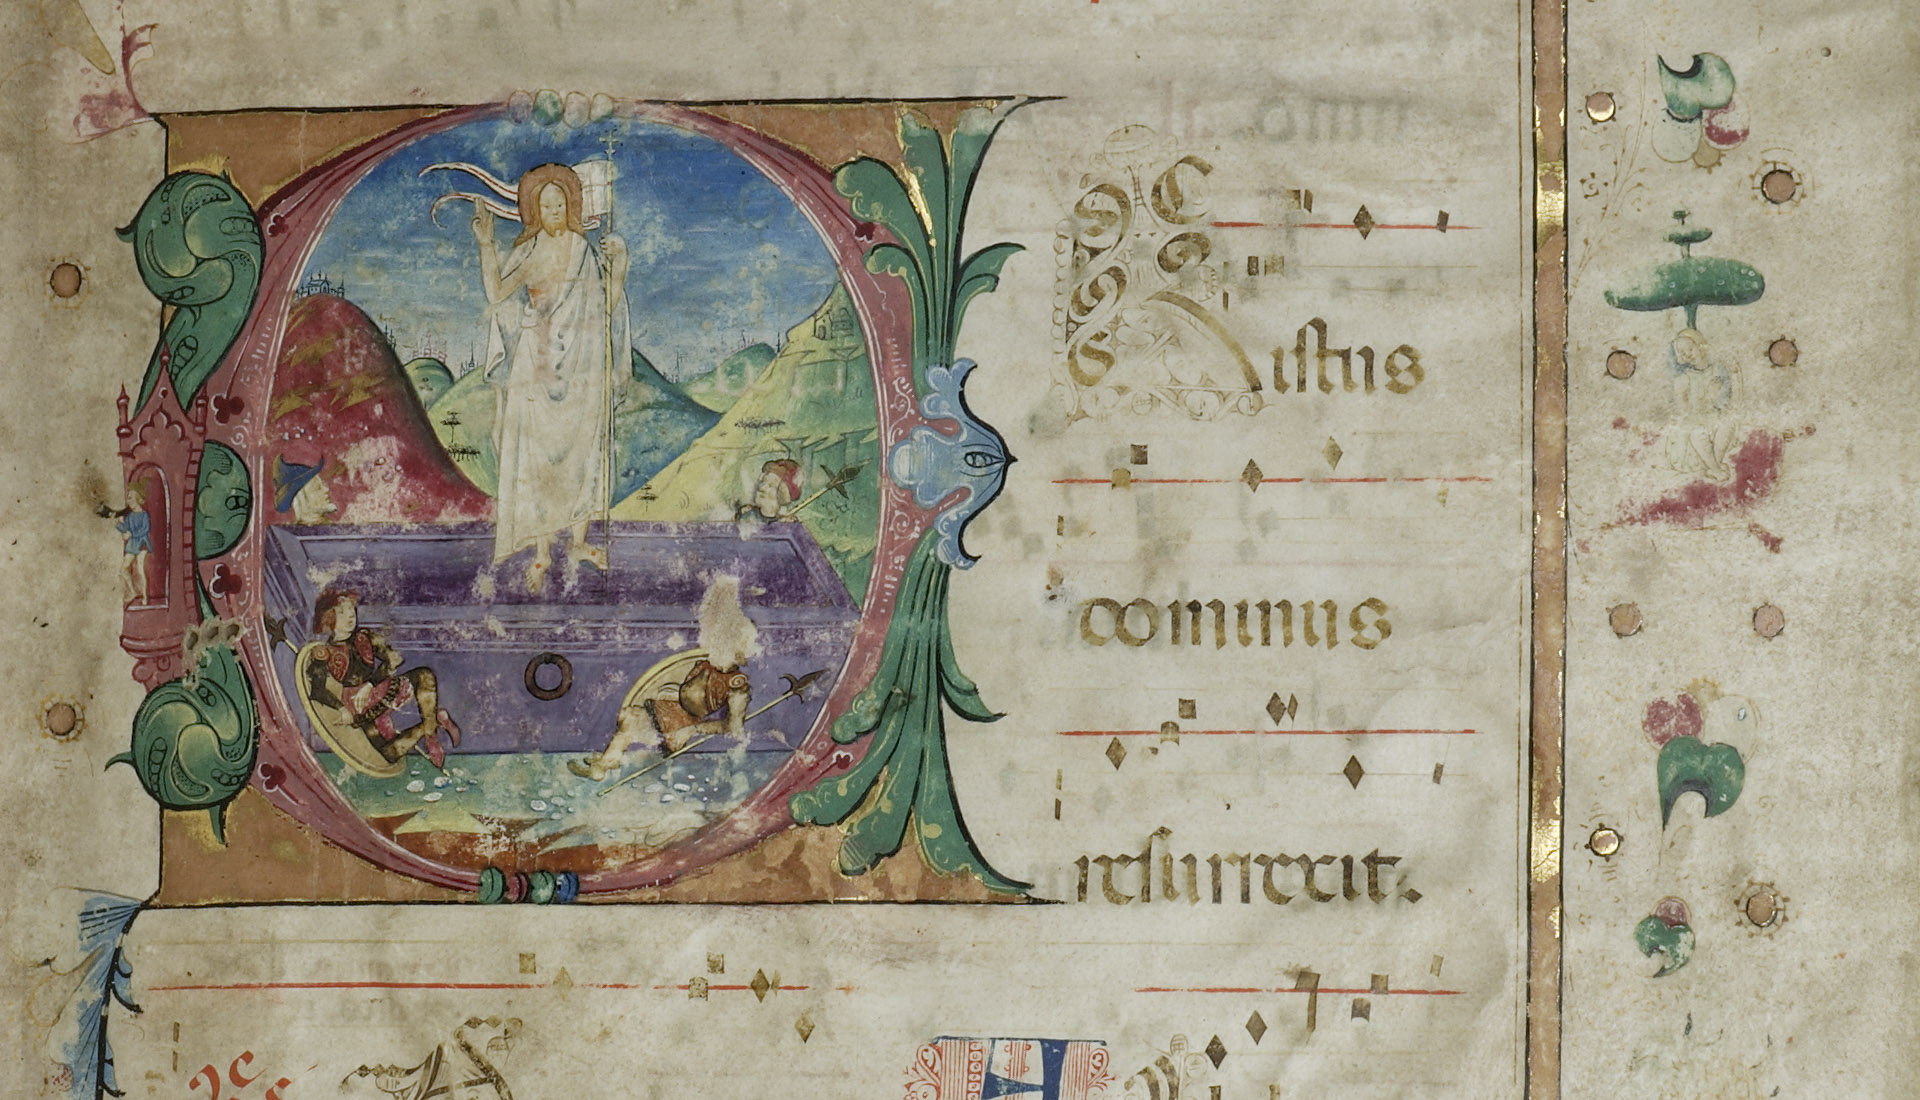 Cristus
dominus
resurrexit.